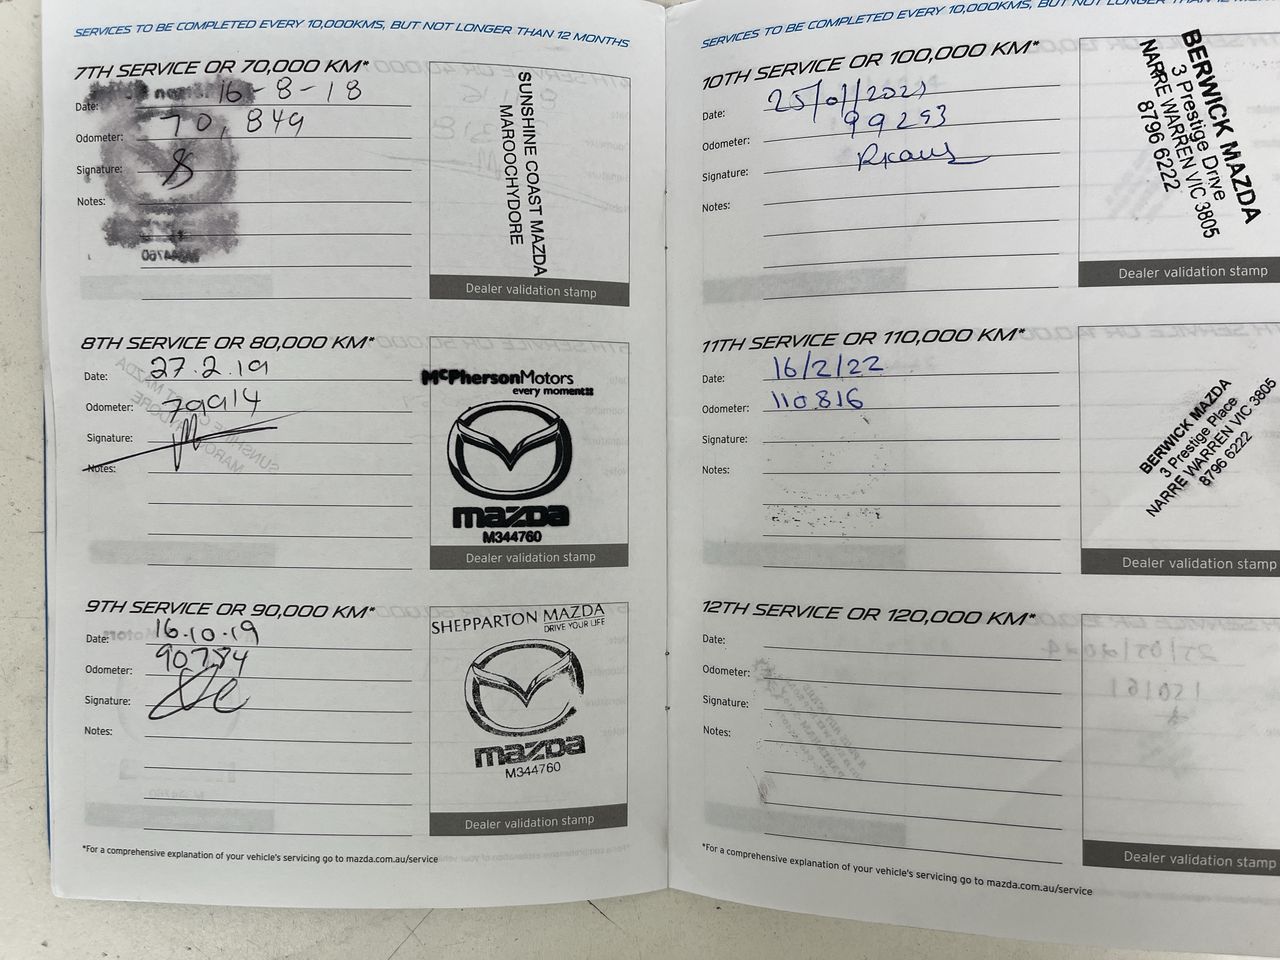 SERVICES TO BE COMPLETED EVERY 10,000KMS, BUT NOT LONGER THAN 12 MONTHS
7TH SERVICE OR 70,000 KM*
Date: 16-8-18
Odometer: 70,849
Signature:
Notes:
SUNSHINE COAST MAZDA
MAROOCHYDORE
Dealer validation stamp
8TH SERVICE OR 80,000 KM*
Date: 27.2.19
Odometer: 79914
Signature:
Notes:
McPherson Motors
every moment!!
mazda
M344760
Dealer validation stamp
9TH SERVICE OR 90,000 KM*
Date: 16.10.19
Odometer: 90784
Signature:
Notes:
SHEPPARTON MAZDA
DRIVE YOUR LIFE
mazda
M344760
Dealer validation stamp
*For a comprehensive explanation of your vehicle's servicing go to mazda.com.au/service
SERVICES TO BE COMPLETED EVERY 10,000KMS, BUT NOT LONGER THAN 12 MONTHS
10TH SERVICE OR 100,000 KM*
Date: 25/01/2021
Odometer: 99293
Signature:
Notes:
BERWICK MAZDA
3 Prestige Drive
NARRE WARREN VIC 3805
8796 6222
Dealer validation stamp
11TH SERVICE OR 110,000 KM*
Date: 16/2/22
Odometer: 110816
Signature:
Notes:
BERWICK MAZDA
3 Prestige Place
NARRE WARREN VIC 3805
8796 6222
Dealer validation stamp
12TH SERVICE OR 120,000 KM*
Date:
Odometer:
Signature:
Notes:
Dealer validation stamp
*For a comprehensive explanation of your vehicle's servicing go to mazda.com.au/service